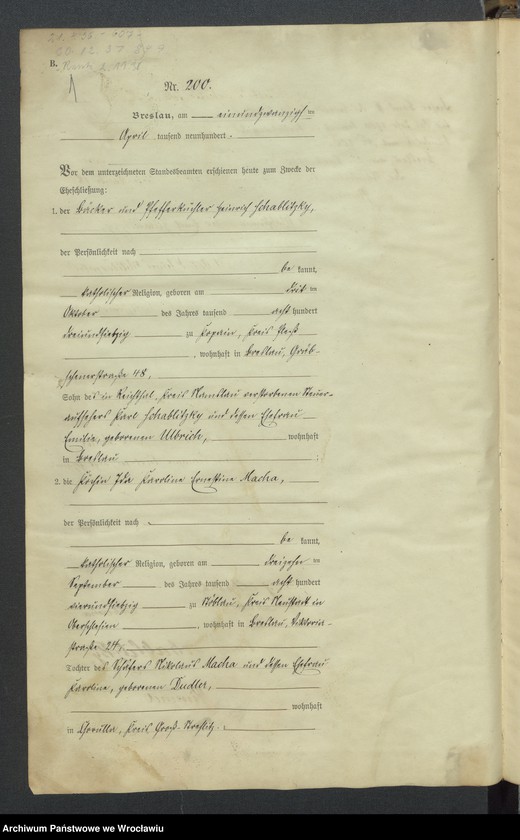 B.
Nr. 200.
Breslau, am einundzwanzigsten
April tausend neunhundert
Vor dem unterzeichneten Standesbeamten erschienen heute zum Zwecke der
Eheschließung:
1. der Bäcker und Pfefferküchler Heinrich Schablitzky,
der Persönlichkeit nach
be kannt,
katholischer Religion, geboren am dritten
Oktober des Jahres tausend acht hundert
dreiundsiebzig zu Kreis
, wohnhaft in Breslau, Gräb-
schenerstraße 48,
Sohn des in Reichthal, Kreis Namslau verstorbenen Steuer-
aufsehers Karl Schablitzky und dessen Ehefrau
Emilie, geborenen Ulbrich, wohnhaft
in Breslau ;
2. die Köchin Ida Karoline Ernestine Macha,
der Persönlichkeit nach
be kannt,
katholischer Religion, geboren am dreizehnten
September des Jahres tausend acht hundert
vierundsiebzig zu Kreis Neustadt in
Oberschlesien , wohnhaft in Breslau, Viktoria-
straße 24,
Tochter des Schäfers Nikolaus Macha und dessen Ehefrau
Karoline, geborenen Dudler,
wohnhaft
in Kreis Groß-Strehlitz.
Archiwum Państwowe we Wrocławiu